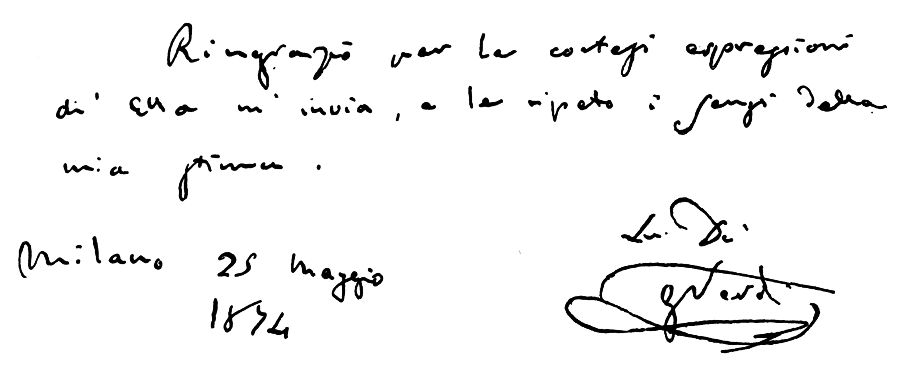 Ringrazio per le cortesi espressioni
di' Ella m'invia, e le ripeto i sensi della
mia stima.
Milano 25 maggio
1874
G Verdi